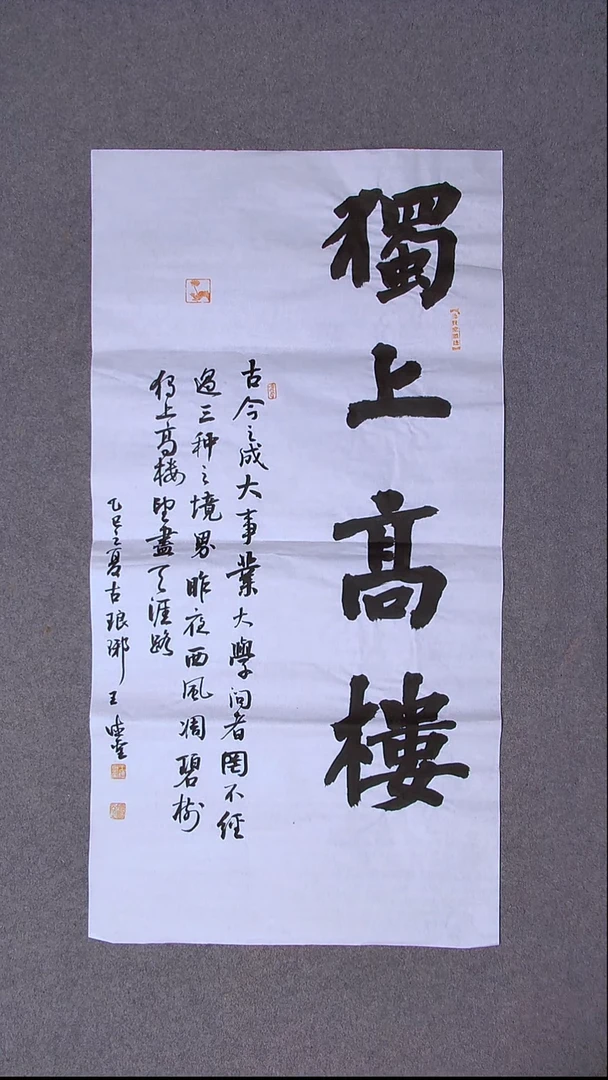 獨上高樓
古今之成大事業大學问者罔不经
過三种之境界昨夜西风凋碧树
独上高楼望盡天涯路
乙巳之夏古琅琊王